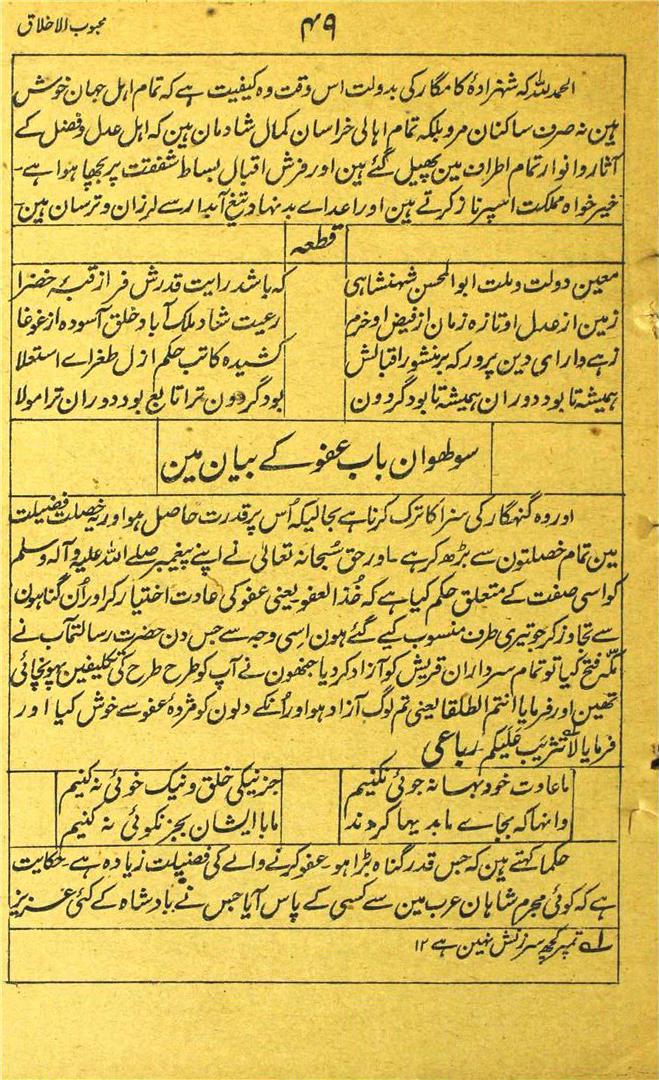 محبوب الاخلاق
۴۹
الحمدللہ کہ شہزادۂ کامگار کی بدولت اس وقت وہ کیفیت ہے کہ تمام اہل جہان خوش
ہین نہ صرف ساکنان مرو بلکہ تمام اہالی خراسان کمال شادمان ہین کہ اہل عدل و فضل کے
آثار و انوار تمام اطراف مین پھیل گئے ہین اور فرش اقبال بساط شفقت پر بچھا ہوا ہے۔
خیر خواہ مملکت اسپر ناز کرتے ہین اور اعداے بدنہاد تیغ آبدار سے لرزان و ترسان ہین۔
قطعہ
معین دولت و ملت ابوالمحسن شہنشاہی کہ باشد رایت قدرش فراز قبۂ خضرا
زمین از عدل او تازہ زمان از فیض او خرم رعیت شاد ملک آباد خلق آسودہ از غوغا
زہے داراے دین پرور کہ بر منشور اقبالش کشیدہ کاتب حکم ازل طغراے استعلا
ہمیشہ تا بود دوران ہمیشہ تا بود گردون بود گردون ترا تابع بود دوران ترا مولا
سولھوان باب عفو کے بیان مین
اور وہ گنہگار کی سزا کا ترک کرنا ہے بحالیکہ اُس پر قدرت حاصل ہو اور یہ خصلت فضیلت
مین تمام خصلتون سے بڑھ کر ہے ۔ اور حق سُبحانہ تعالیٰ نے اپنے پیغمبر صلے اللہ علیہ و آلہ وسلم
کو اسی صفت کے متعلق حکم کیا ہے کہ خُذ العفو یعنی عفو کی عادت اختیار کر اور اُن گناہون
سے تجاوز کر جو تیری طرف منسوب کیے گئے ہون اِسی وجہ سے جس دن حضرت رسالتمآب نے
مکّہ فتح کیا تو تمام سرداران قریش کو آزاد کر دیا جنھون نے آپ کو طرح طرح کی تکلیفین پہونچائی
تھین اور فرمایا انتم الطلقا یعنی تم لوگ آزاد ہو اور اُنکے دلون کو مژدۂ عفو سے خوش کیا اور
فرمایا لا تثریب علیکم رباعی
ما عادت خود بہانہ جوئی نکنیم جز نیکی خلق و نیک خوئی نہ کنیم
وانہا کہ بجاے ما بدیہا کردند ما با ایشان بجز نکوئی نہ کنیم
حکما کہتے ہین کہ جس قدر گناہ بڑا ہو ۔ عفو کرنے والے کی فضیلت زیادہ ہے ۔ حکایت
ہے کہ کوئی مجرم شاہان عرب مین سے کسی کے پاس آیا جس نے بادشاہ کے کئی عزیز
لہ تمپر کچھ سرزنش نہین ہے ۱۲